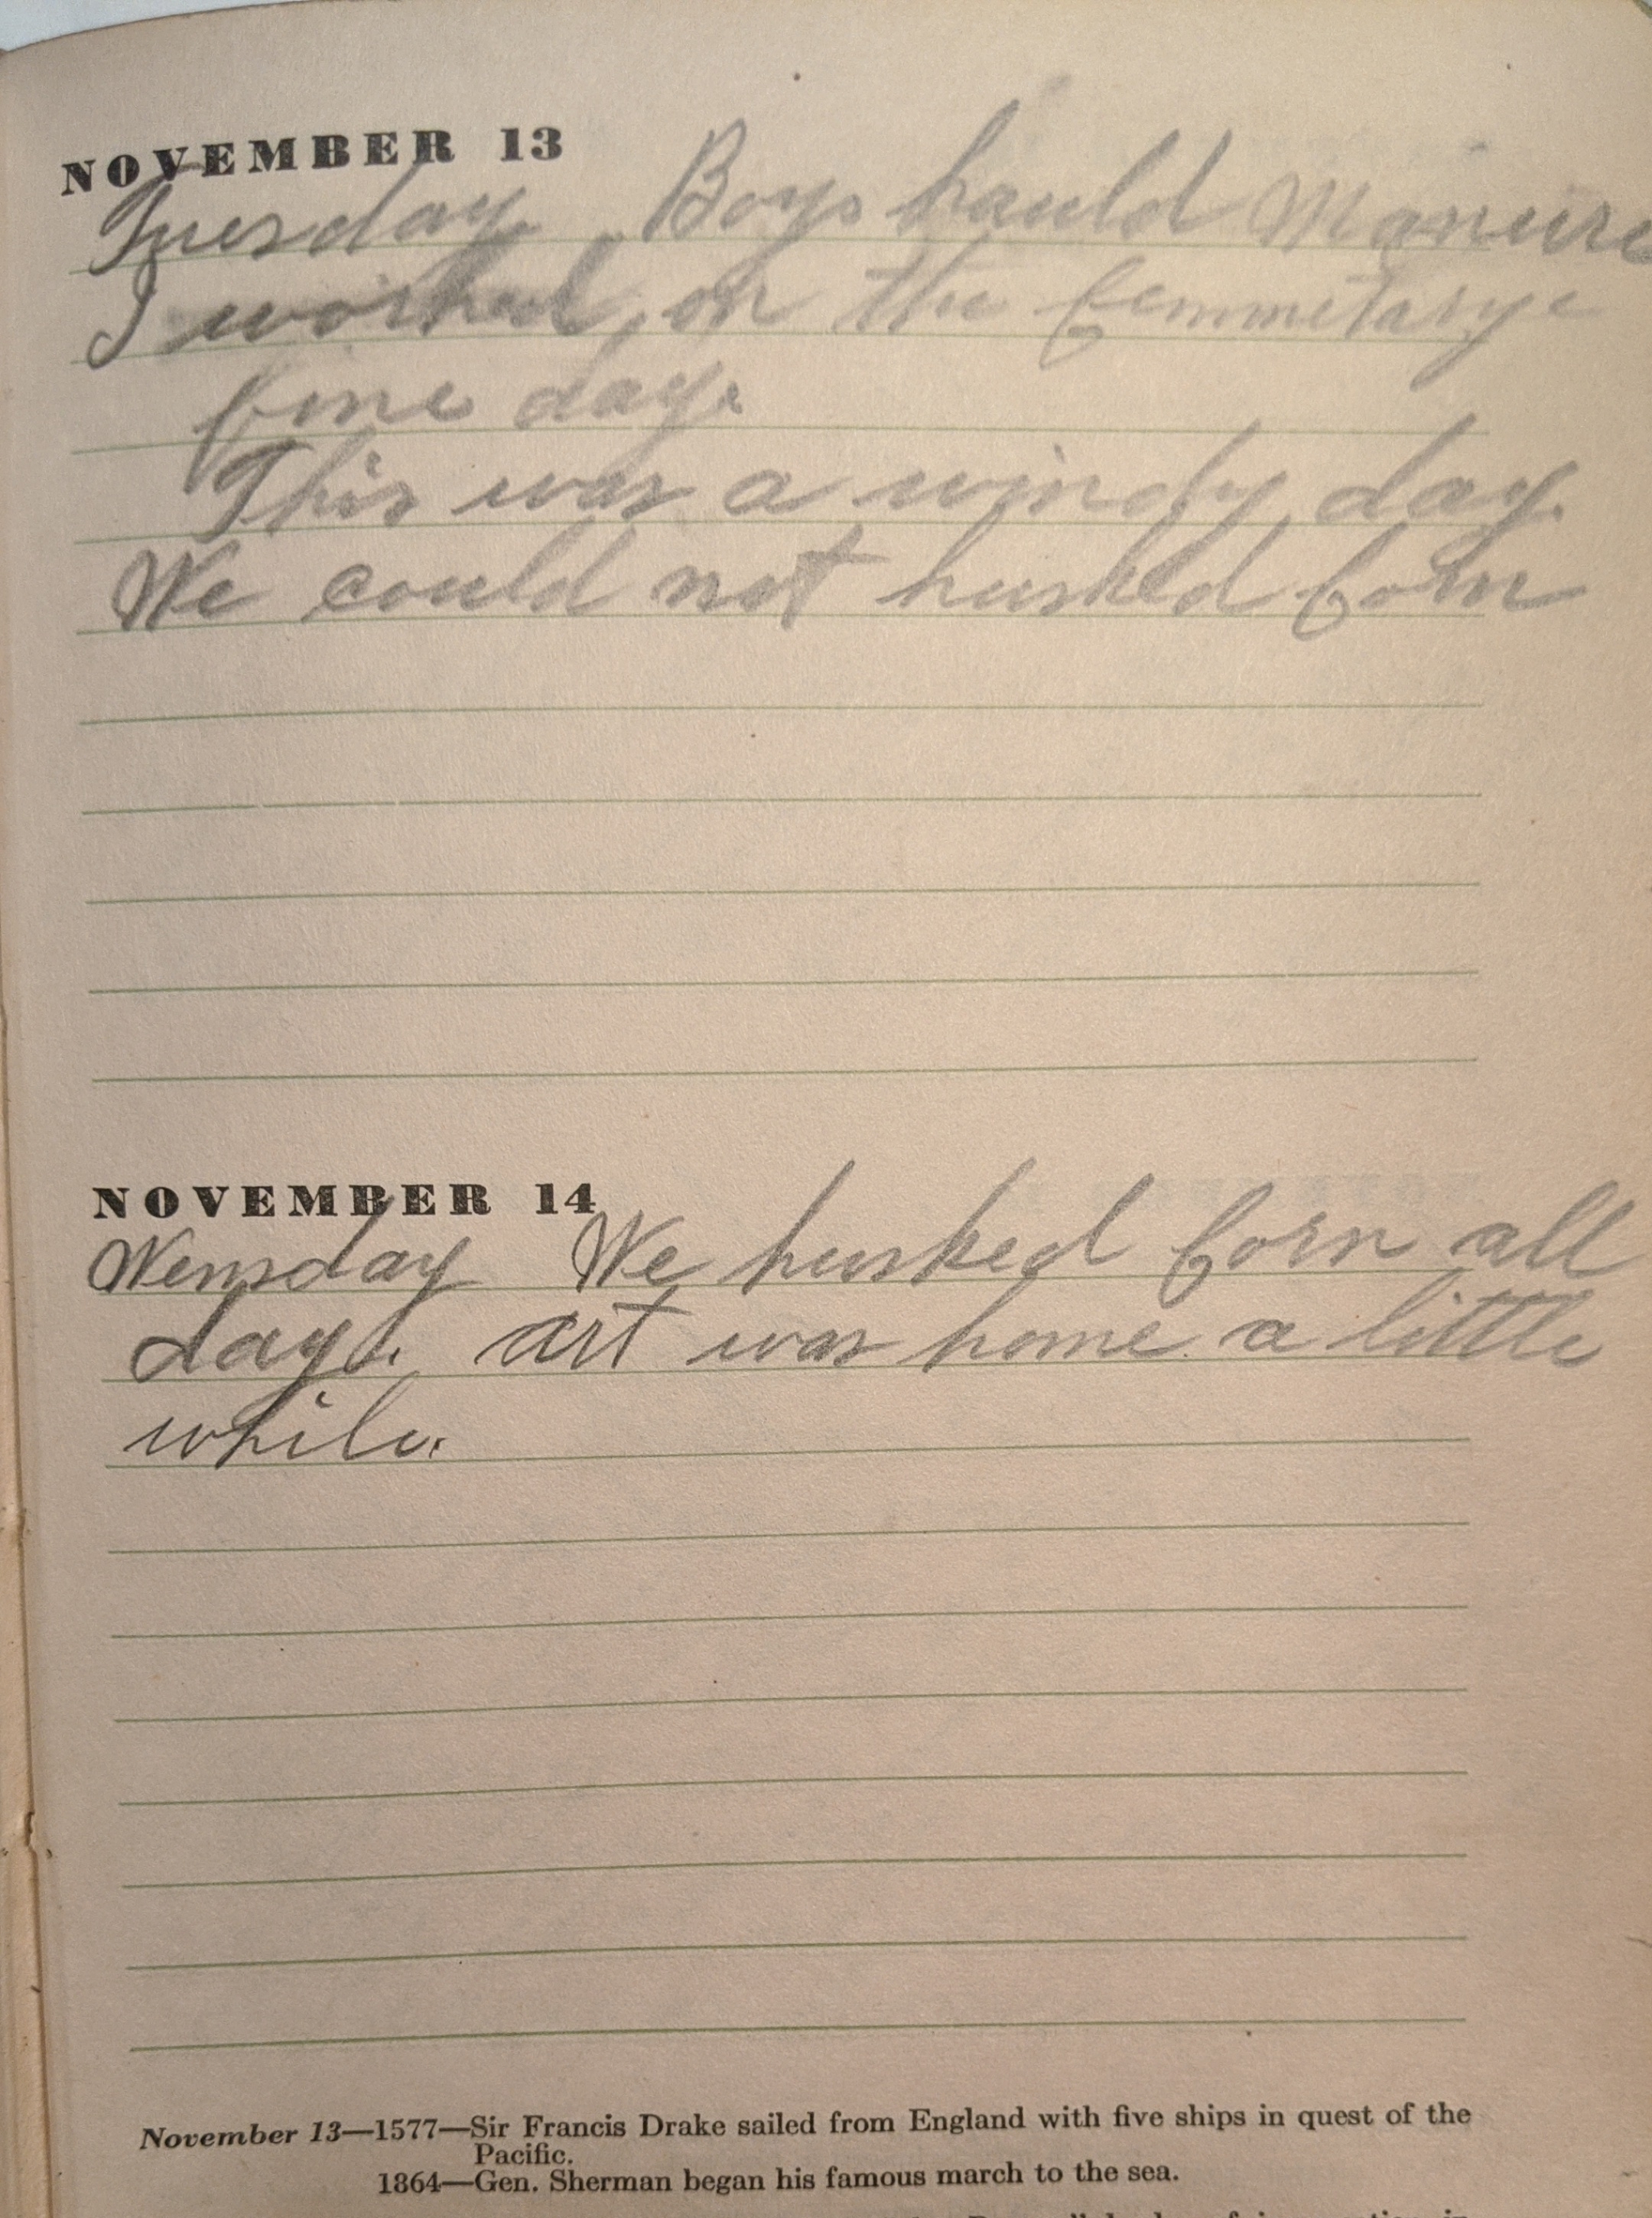 NOVEMBER 13
Tuesday Boys hauld Manure
I worked on the Cemmetarye
fine day.
This was a windy day.
We could not husked Corn
NOVEMBER 14
Wensday We husked Corn all
day. Art was home a little
while.
November 13—1577—Sir Francis Drake sailed from England with five ships in quest of the
Pacific.
1864—Gen. Sherman began his famous march to the sea.